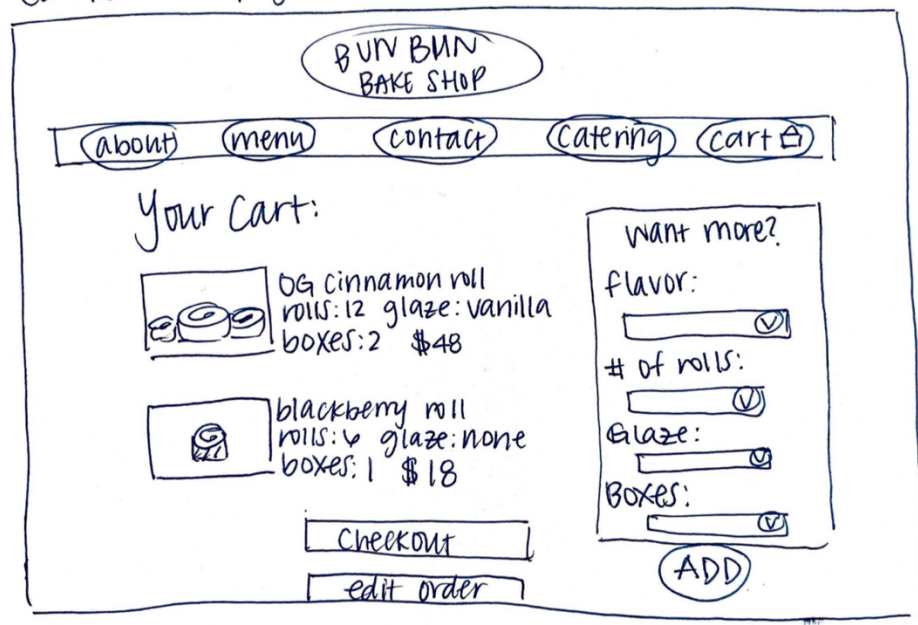 BUN BUN
BAKE SHOP
about menu contact catering cart
Your Cart:
OG cinnamon roll
rolls: 12 glaze: vanilla
boxes: 2 $48
blackberry roll
rolls: 6 glaze: none
boxes: 1 $18
Checkout
edit order
Want more?
flavor:
# of rolls:
Glaze:
Boxes:
ADD